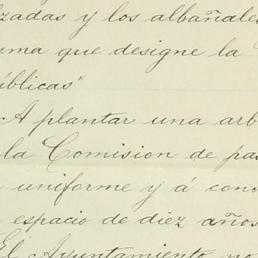 zadas y los albañales
uma que designe la
úblicas"
A plantar una arb
la Comision de pas
uniforme y á cond
espacio de diez años
El Ayuntamiento no